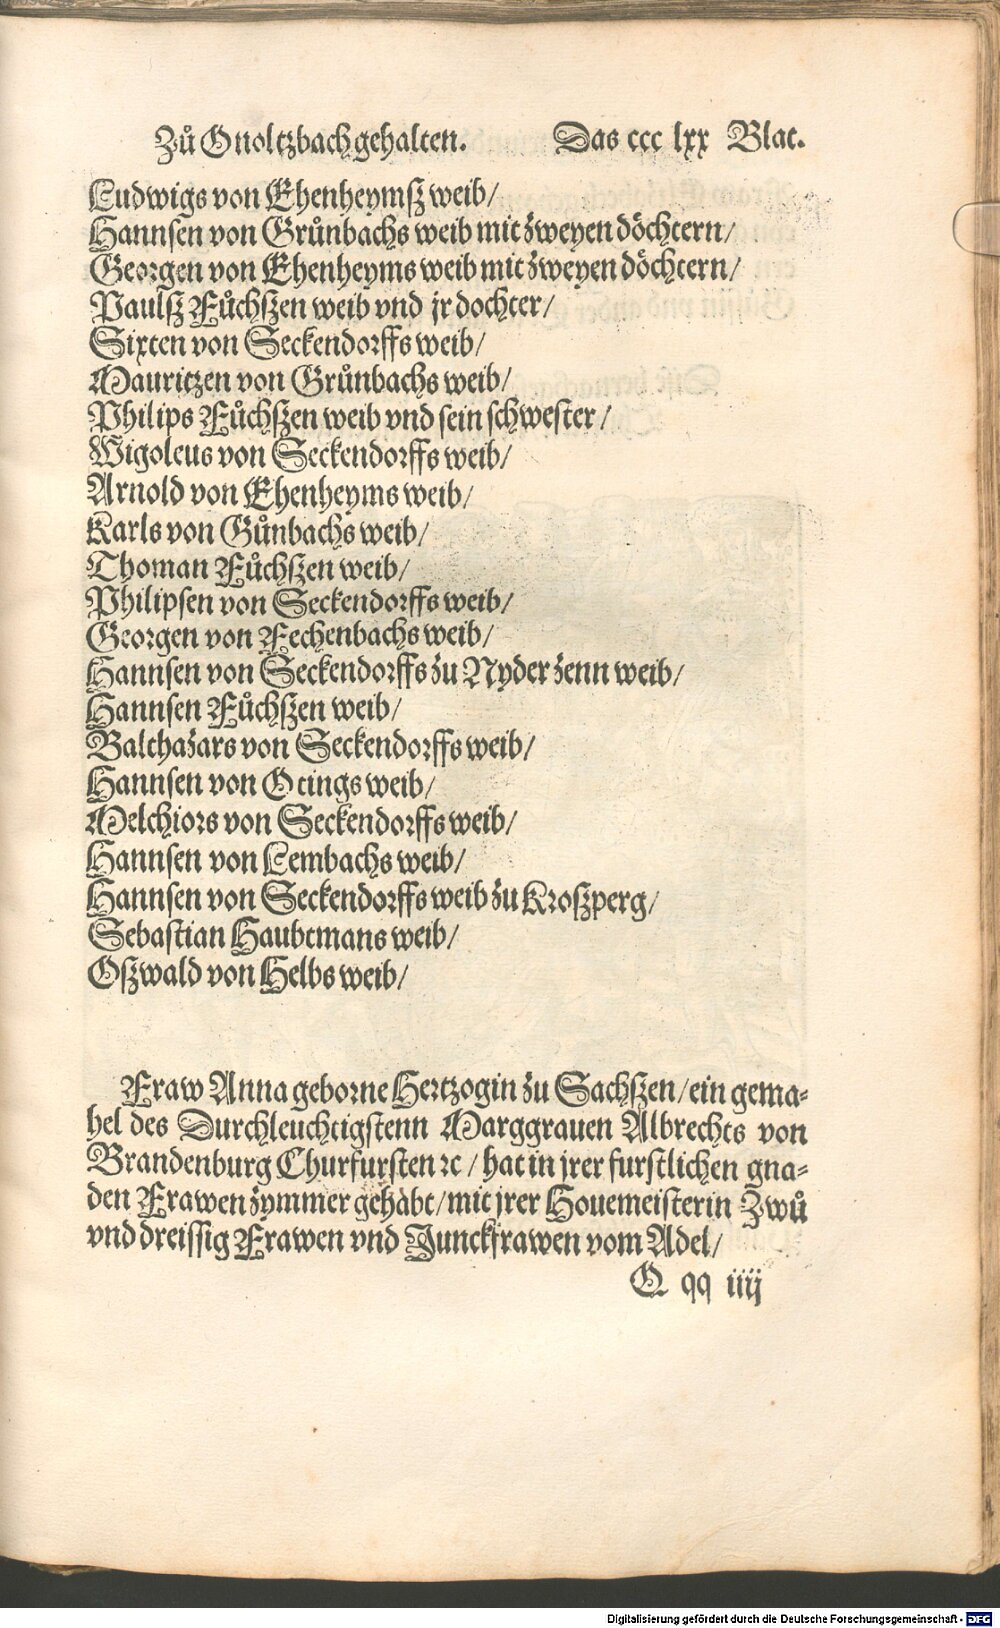 Zů Onoltzbach gehalten. Das ccc lxx Blat.
Ludwigs von Ehenheymsz weib/
Hannsen von Grůnbachs weib mit zweyen döchtern/
Georgen von Ehenheyms weib mit zweyen döchtern/
Paulsz Fůchszen weib vnd jr dochter/
Sixten von Seckendorffs weib/
Mauritzen von Grůnbachs weib/
Philips Fůchszen weib vnd sein schwester/
Wigoleus von Seckendorffs weib/
Arnold von Ehenheyms weib/
Karls von Gůnbachs weib/
Thoman Fůchszen weib/
Philipsen von Seckendorffs weib/
Georgen von Fechenbachs weib/
Hannsen von Seckendorffs zu Nyder zenn weib/
Hannsen Fůchszen weib/
Balthazars von Seckendorffs weib/
Hannsen von Otings weib/
Melchiors von Seckendorffs weib/
Hannsen von Lembachs weib/
Hannsen von Seckendorffs weib zu Kroszperg/
Sebastian Haubtmans weib/
Oszwald von Helbs weib/
Fraw Anna geborne Hertzogin zu Sachszen/ein gema-
hel des Durchleuchtigstenn Marggrauen Albrechts von
Brandenburg Churfursten ꝛc/ hat in jrer furstlichen gna-
den Frawenzymmer gehabt/mit jrer Houemeisterin Zwů
vnd dreissig Frawen vnd Junckfrawen vom Adel/
Q qq iiij
Digitalisierung gefördert durch die Deutsche Forschungsgemeinschaft - DFG